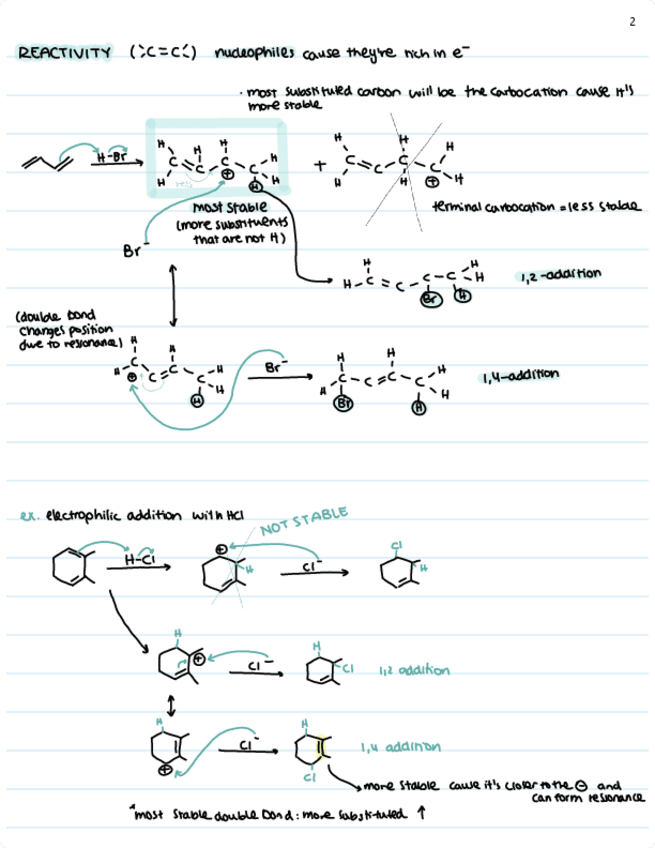 2
REACTIVITY (>C=C<) nucleophiles cause they're rich in e⁻
· most substituted carbon will be the carbocation cause it's
more stable
H-Br
H H H H
C C C C
H ⊕ H H
res
+
H H H
C C C C
H H ⊕ H
most stable
(more substituents
that are not H)
terminal carbocation = less stable
Br⁻
H H
H-C=C-C-C-H
Br H
1,2-addition
(double bond
changes position
due to resonance)
H H
H-C C=C C-H
⊕ H H
Br⁻
H H
H C-C=C-C H
Br H H
1,4-addition
ex. electrophilic addition with HCl
NOT STABLE
H-Cl
⊕
H
Cl⁻
Cl
H
H
⊕
Cl⁻
H
Cl
1,2 addition
H
⊕
Cl⁻
H
Cl
1,4 addition
more stable cause it's closer to the ⊖ and
can form resonance
*most stable double bond: more substituted ↑